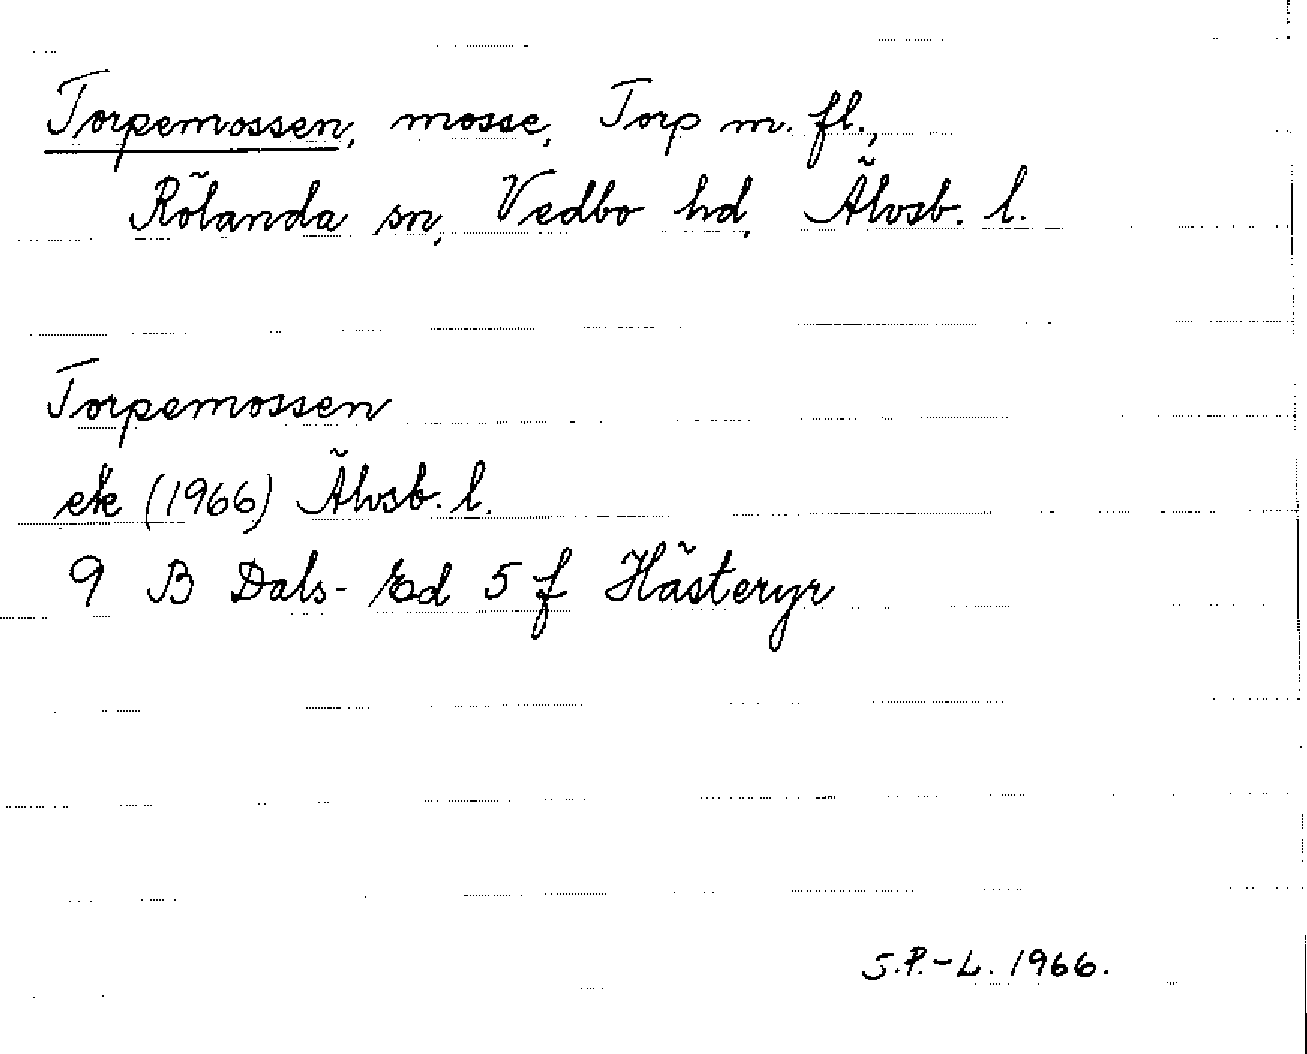 Torpemossen, mosse, Torp m. fl.,
Rölanda sn, Vedbo hd, Älvsb. l.
Torpemossen
ek (1966) Älvsb. l.
9 B Dals-Ed 5 f Hästeryr
S.P.-L. 1966.